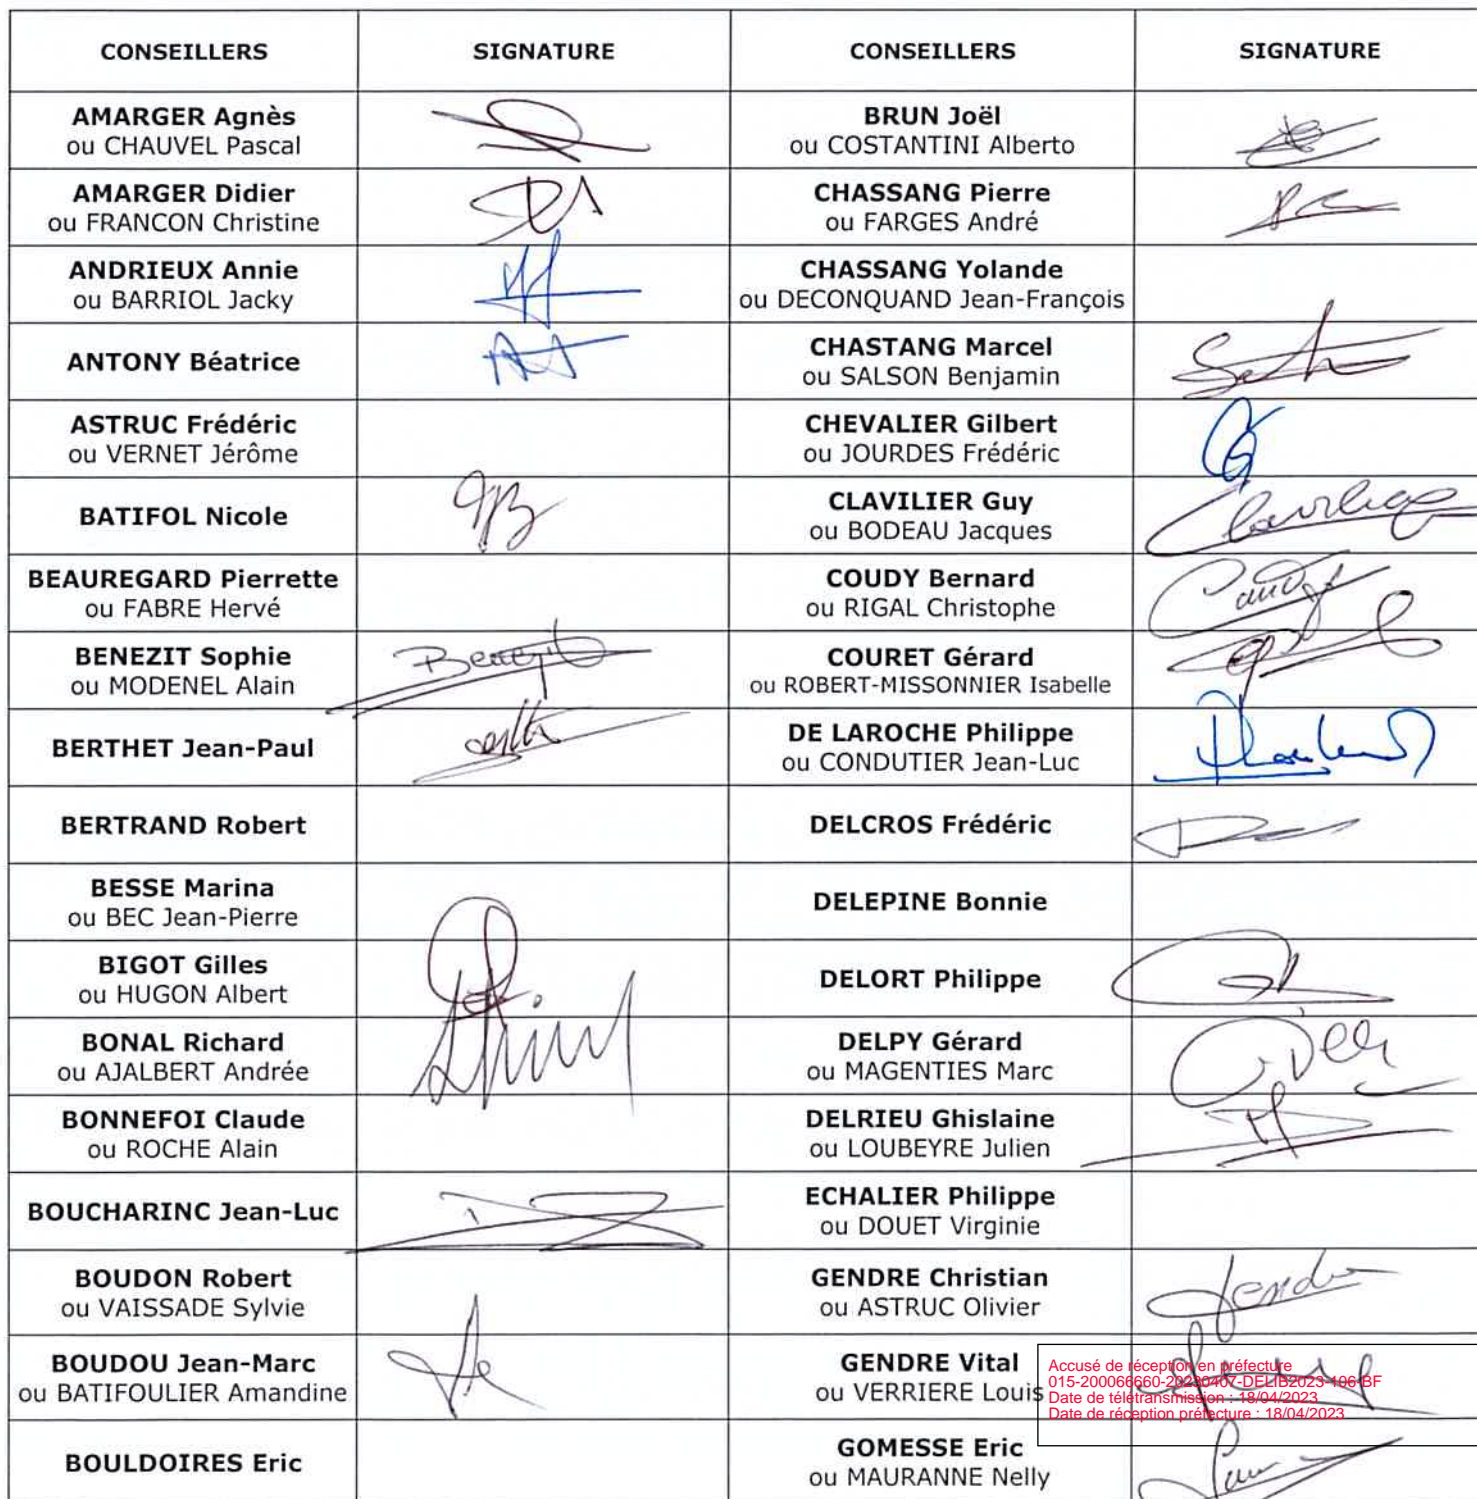 CONSEILLERS SIGNATURE CONSEILLERS SIGNATURE
AMARGER Agnès
ou CHAUVEL Pascal
BRUN Joël
ou COSTANTINI Alberto
AMARGER Didier
ou FRANCON Christine
CHASSANG Pierre
ou FARGES André
ANDRIEUX Annie
ou BARRIOL Jacky
CHASSANG Yolande
ou DECONQUAND Jean-François
ANTONY Béatrice
CHASTANG Marcel
ou SALSON Benjamin
ASTRUC Frédéric
ou VERNET Jérôme
CHEVALIER Gilbert
ou JOURDES Frédéric
BATIFOL Nicole
CLAVILIER Guy
ou BODEAU Jacques
BEAUREGARD Pierrette
ou FABRE Hervé
COUDY Bernard
ou RIGAL Christophe
BENEZIT Sophie
ou MODENEL Alain
Benezit
COURET Gérard
ou ROBERT-MISSONNIER Isabelle
BERTHET Jean-Paul
DE LAROCHE Philippe
ou CONDUTIER Jean-Luc
BERTRAND Robert
DELCROS Frédéric
BESSE Marina
ou BEC Jean-Pierre
DELEPINE Bonnie
BIGOT Gilles
ou HUGON Albert
DELORT Philippe
BONAL Richard
ou AJALBERT Andrée
DELPY Gérard
ou MAGENTIES Marc
BONNEFOI Claude
ou ROCHE Alain
DELRIEU Ghislaine
ou LOUBEYRE Julien
BOUCHARINC Jean-Luc
ECHALIER Philippe
ou DOUET Virginie
BOUDON Robert
ou VAISSADE Sylvie
GENDRE Christian
ou ASTRUC Olivier
BOUDOU Jean-Marc
ou BATIFOULIER Amandine
GENDRE Vital
ou VERRIERE Louis
Accusé de réception en préfecture
015-200066660-20230407-DELIB2023-106-BF
Date de télétransmission : 18/04/2023
Date de réception préfecture : 18/04/2023
BOULDOIRES Eric
GOMESSE Eric
ou MAURANNE Nelly